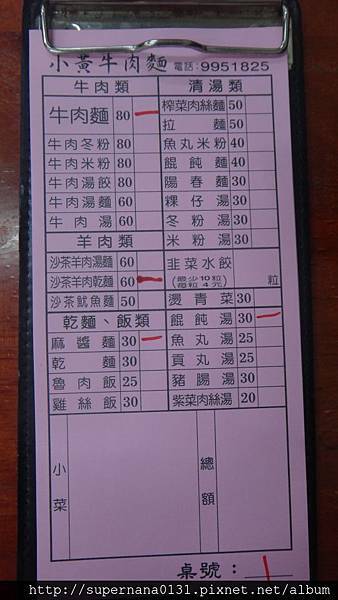 小黃牛肉麵 電話:9951825
牛肉類
牛肉麵 80
牛肉冬粉 80
牛肉米粉 80
牛肉湯餃 80
牛肉湯麵 60
牛肉湯 60
羊肉類
沙茶羊肉湯麵 60
沙茶羊肉乾麵 60
沙茶魷魚麵 50
乾麵、飯類
麻醬麵 30
乾麵 30
魯肉飯 25
雞絲飯 30
清湯類
榨菜肉絲麵 50
拉麵 50
魚丸米粉 40
餛飩麵 40
陽春麵 30
粿仔湯 30
冬粉湯 30
米粉湯 30
韭菜水餃
(最少10粒 每粒4元) 粒
燙青菜 30
餛飩湯 30
魚丸湯 25
貢丸湯 25
豬腸湯 30
紫菜肉絲湯 20
小菜
總額
桌號: 1
http://supernana0131.pixnet.net/album